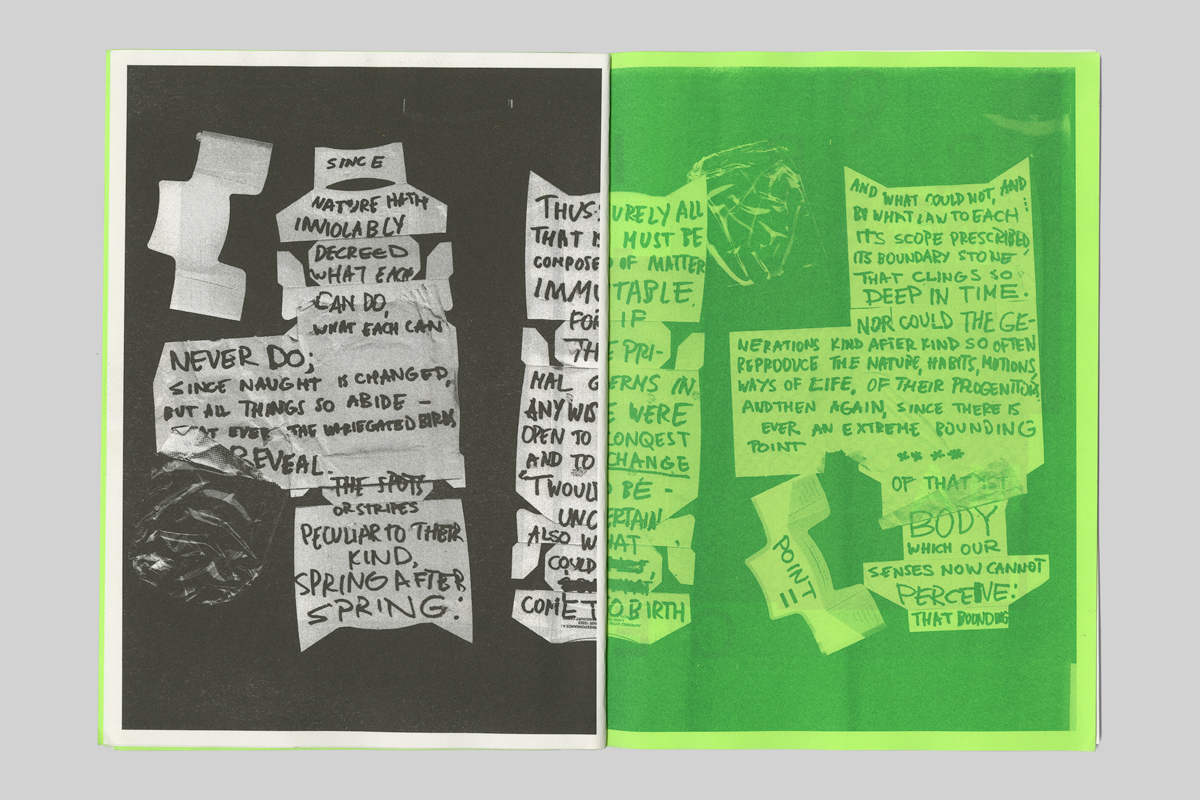 SINCE
NATURE HATH
INVIOLABLY
DECREED
WHAT EACH
CAN DO,
WHAT EACH CAN
NEVER DO;
SINCE NAUGHT IS CHANGED,
BUT ALL THINGS SO ABIDE –
THAT EVER THE VARIEGATED BIRDS
REVEAL
THE SPOTS
OR STRIPES
PECULIAR TO THEIR
KIND,
SPRING AFTER
SPRING:
THUS: SURELY ALL
THAT IS MUST BE
COMPOSED OF MATTER
IMMUTABLE.
FOR IF
THE PRI-
MAL GERMS IN
ANYWISE WERE
OPEN TO CONQEST
AND TO CHANGE
'TWOULD BE –
UNCERTAIN
ALSO WHAT
COULD
COME TO BIRTH
AND WHAT COULD NOT, AND
BY WHAT LAW TO EACH
ITS SCOPE PRESCRIBED,
ITS BOUNDARY STONE
THAT CLINGS SO
DEEP IN TIME.
NOR COULD THE GE-
NERATIONS KIND AFTER KIND SO OFTEN
REPRODUCE THE NATURE, HABITS, MOTIONS,
WAYS OF LIFE, OF THEIR PROGENITORS.
AND THEN AGAIN, SINCE THERE IS
EVER AN EXTREME BOUNDING
POINT
****
OF THAT 1ST
BODY
WHICH OUR
SENSES NOW CANNOT
PERCEIVE:
THAT BOUNDING
POINT
=